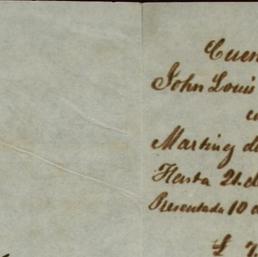 Cuen
John Louis
Martinez d
Hasta 21. d
Presentada 10 d
£ 7